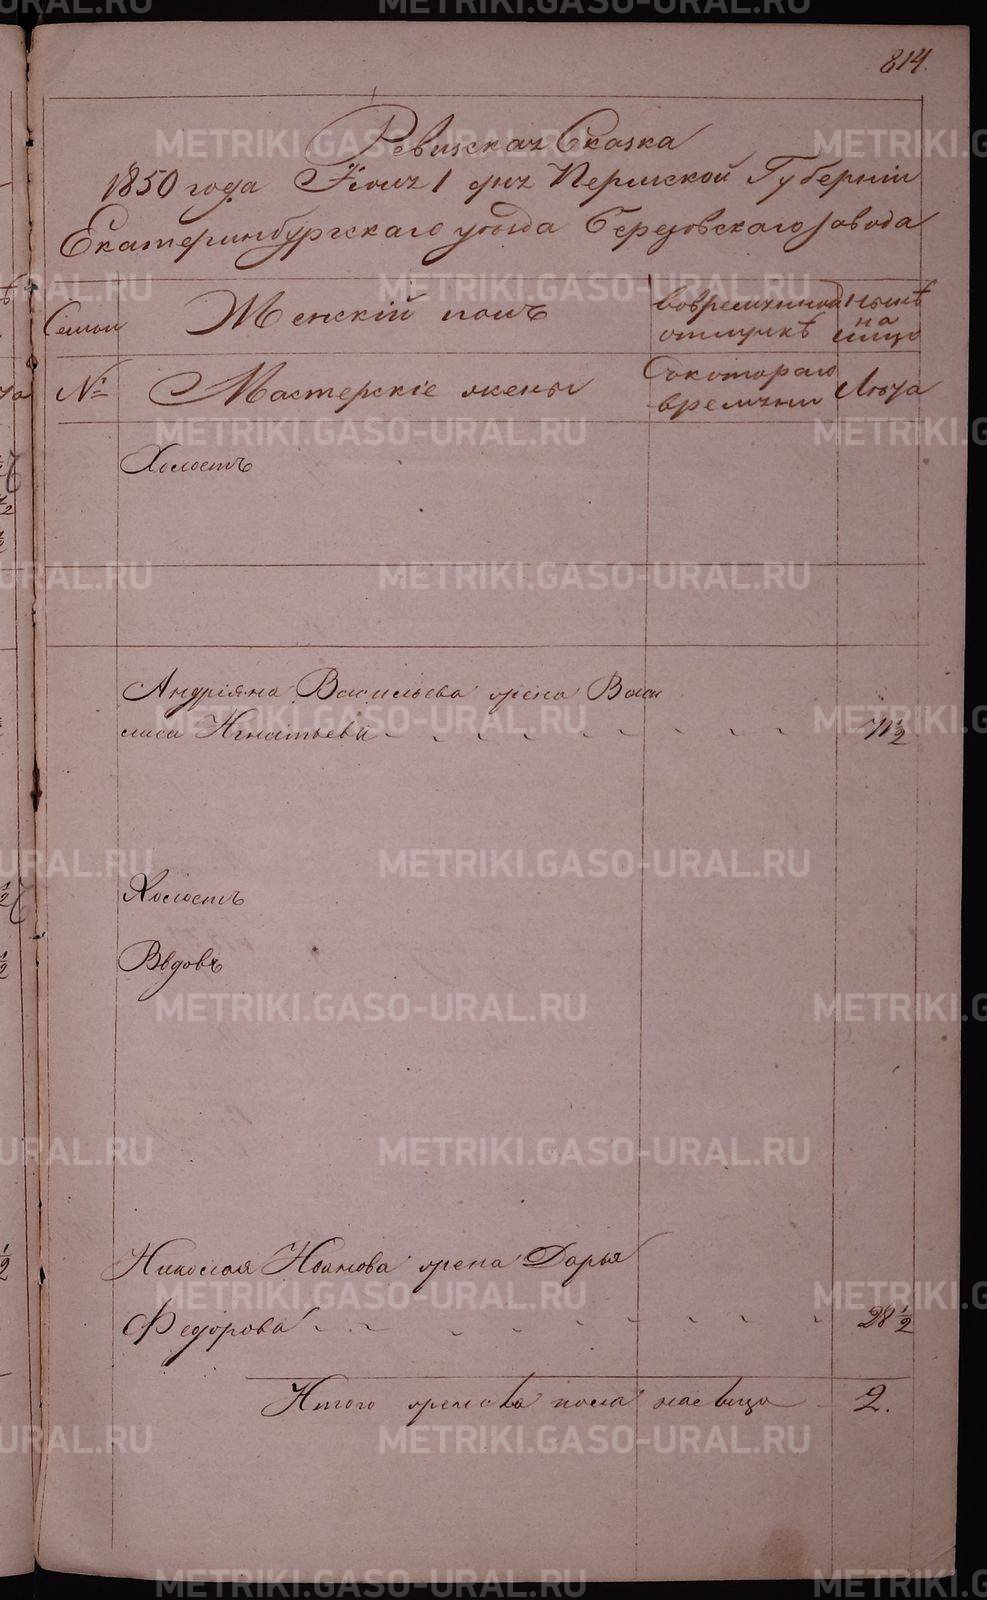 814.
Ревизская Сказка
1850 года Июля 1 дня Пермской Губерніи
Екатеринбургскаго уѣзда Березовскаго завода
Семьи Женскій полъ
во временной отлучкѣ
нынѣ на лицо
№ Мастерскіе жены
Съ котораго времени
Лѣта
Холостъ
Андріяна Васильева жена Васи
лиса Игнатьева 71 1/2
Холостъ
Вдовъ
Николая Иванова жена Дарья
Федорова 28 1/2
Итого женска пола на лицо 2.
METRIKI.GASO-URAL.RU